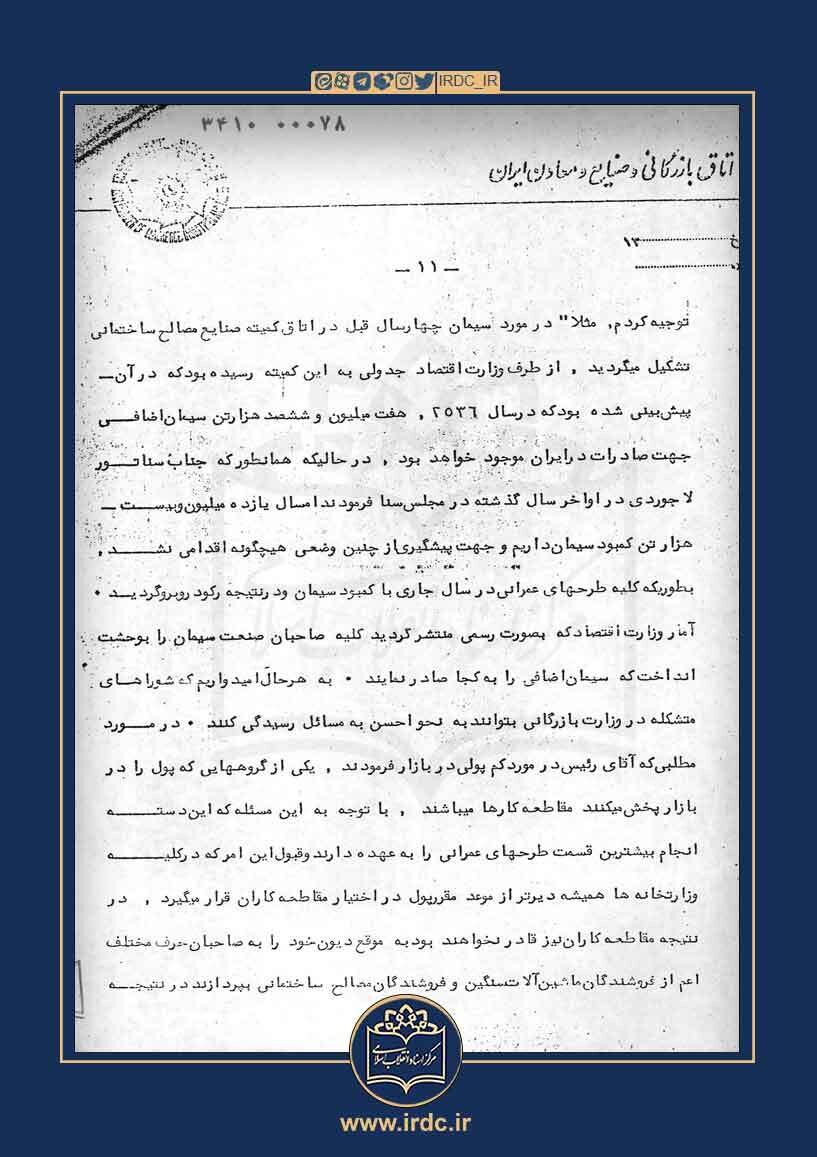 IRDC_IR
۳۴۱۰ ۰۰۰۷۸
اتاق بازرگانی و صنایع و معادن ایران
۱۳
ــ ۱۱ ــ
توجیه کردم, مثلا" در مورد سیمان چهارسال قبل در اتاق کمیته صنایع مصالح ساختمانی
تشکیل میگردید , از طرف وزارت اقتصاد جدولی به این کمیته رسیده بود که در آن ــ
پیش‌بینی شده بود که در سال ۲۵۳۶ , هفت میلیون و ششصد هزار تن سیمان اضافــی
جهت صادرات در ایران موجود خواهد بود , در حالیکه همانطور که جناب سناتــور
لاجوردی در اواخر سال گذشته در مجلس سنا فرمودند امسال یازده میلیون و بیســت ــ
هزار تن کمبود سیمان داریم و جهت پیشگیری از چنین وضعی هیچگونه اقدامی نشــد ,
بطوریکه کلیه طرحهای عمرانی در سال جاری با کمبود سیمان و در نتیجه رکود روبرو گردیــد ۰
آمار وزارت اقتصاد که بصورت رسمی منتشر گردید کلیه صاحبان صنعت سیمان را بوحشت
انداخت که سیمان اضافی را به کجا صادر نمایند ۰ به هر حال امیدواریم که شوراهای
متشکله در وزارت بازرگانی بتوانند به نحو احسن به مسائل رسیدگی کنند ۰ در مــورد
مطلبی که آقای رئیس در مورد کم پولی در بازار فرمودند , یکی از گروههایی که پول را در
بازار پخش میکنند مقاطعه کارها میباشند , با توجه به این مسئله که این دستــه
انجام بیشترین قسمت طرحهای عمرانی را به عهده دارند و قبول این امر که در کلیــه
وزارتخانه ها همیشه دیرتر از موعد مقرر پول در اختیار مقاطعه کاران قرار میگیرد , در
نتیجه مقاطعه کاران نیز قادر نخواهند بود به موقع دیون خود را به صاحبان حرف مختلف
اعم از فروشندگان ماشین آلات سنگین و فروشندگان مصالح ساختمانی بپردازند در نتیجــه
مرکز اسناد انقلاب اسلامی
www.irdc.ir